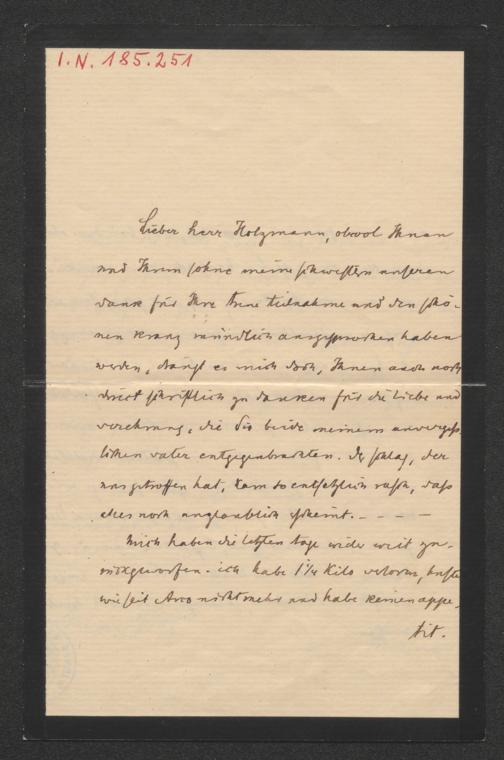 I.N. 185.251
Lieber herr Holzmann, obwol Ihnen
und Ihrem sohne meine schwestern unseren
dank für Ihre treue teilnahme und den schö-
nen kranz mündlich ausgesprochen haben
werden, drängt es mich doch, Ihnen auch noch
direct schriftlich zu danken für die liebe und
verehrung, die Sie beide meinem unvergess-
lichen vater entgegenbrachten. Der schlag, der
uns getroffen hat, kam so entsetzlich rasch, dass
alles noch unglaublich scheint. – – – –
Mich haben die letzten tage wider weit zu-
rückgeworfen. ich habe 1¼ Kilo verloren, huste
wie seit Arco nicht mehr und habe keinen appe-
tit.